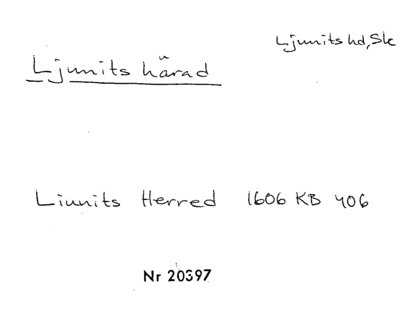 Ljunits hd, Sk
Ljunits härad
Liunits Herred 1606 KB 406
Nr 20397